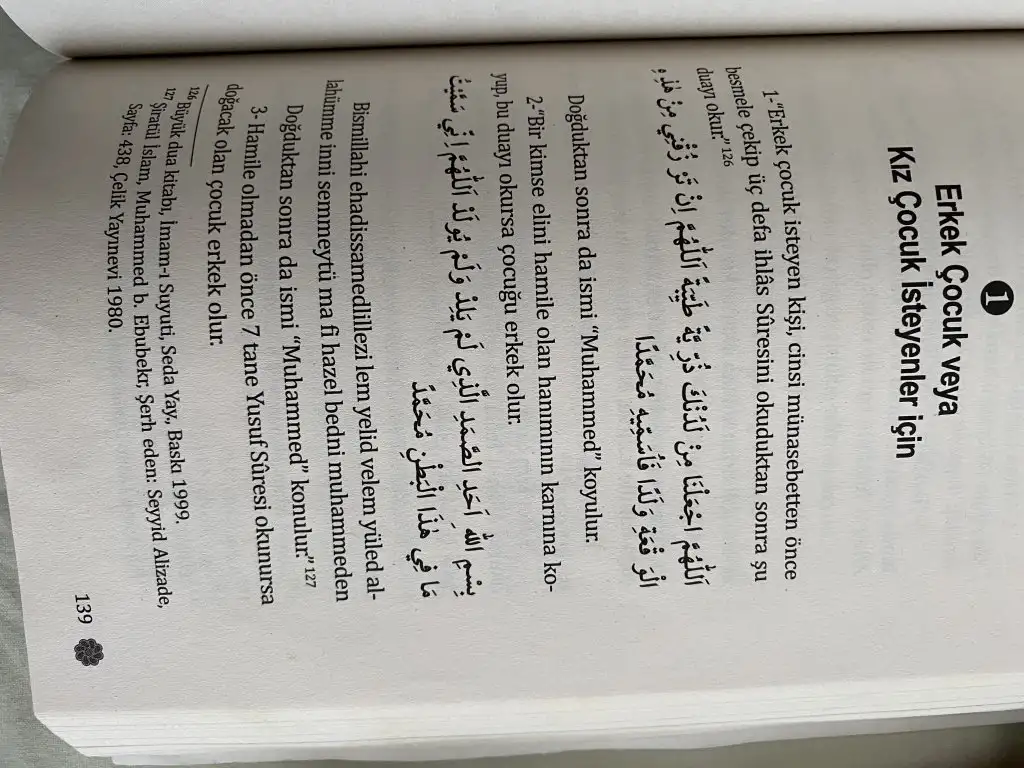 1
Erkek Çocuk veya
Kız Çocuk İsteyenler için
1-"Erkek çocuk isteyen kişi, cinsi münasebetten önce
besmele çekip üç defa ihlâs Sûresini okuduktan sonra şu
duayı okur."126
اَللّٰهُمَّ اجْعَلْنَا مِنْ لَدُنْكَ ذُرِّيَّةً طَيِّبَةً اَللّٰهُمَّ اِنْ تَرْزُقْنِي مِنْ هٰذِهِ
الْوَقْعَةِ وَلَدًا فَأُسَمِّيهِ مُحَمَّدًا
Doğduktan sonra da ismi "Muhammed" koyulur.
2-"Bir kimse elini hamile olan hanımının karnına ko-
yup, bu duayı okursa çocuğu erkek olur:
بِسْمِ اللّٰهِ اَحَدِ الصَّمَدِ الَّذِي لَمْ يَلِدْ وَلَمْ يُولَدْ اَللّٰهُمَّ اِنِّي سَمَّيْتُ
مَا فِي هٰذَا الْبَطْنِ مُحَمَّدً
Bismillahi ehadissamedillezi lem yelid velem yüled al-
lahümme inni semmeytü ma fi hazel bedni muhammeden
Doğduktan sonra da ismi "Muhammed" konulur."127
3- Hamile olmadan önce 7 tane Yusuf Sûresi okunursa
doğacak olan çocuk erkek olur.
126 Büyük dua kitabı, İmam-ı Suyuti, Seda Yay., Baskı 1999.
127 Şiratül İslam, Muhammed b. Ebubekr, Şerh eden: Seyyid Alizade,
Sayfa: 438, Çelik Yayınevi 1980.
139